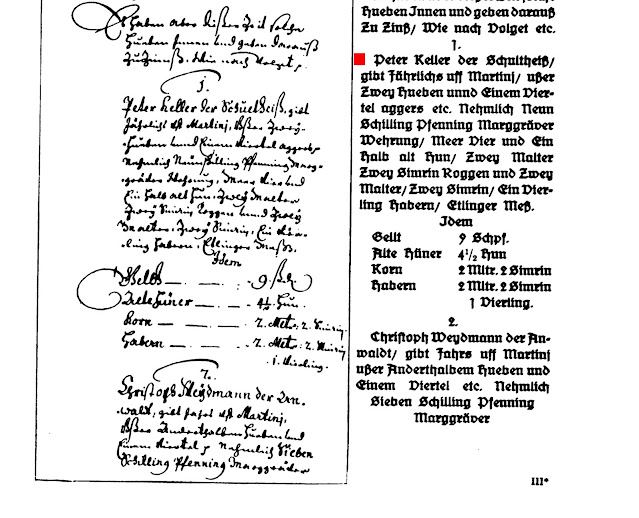 haben aber dißer Zeit solche
Hueben Innen und geben darauß
Zu Zinnß. Wie nach Volget,
1.
Peter Keller der Schuetheiß, gibt
Jährlich uff Martinj, ußer Zwey
Hueben unnd Einem Viertel aggers,
Nehmlich Neun schilling Pfenning Marg-
gräver Wehrung, Meer Vier und
Ein halb alt Hun, Zwey Malter
Zwey Simrin Roggen unnd Zwey
Malter, Zwey Simrin, Ein Vier-
ling Habern, Etlinger Meß.
Idem
Geldt — — — 9 ß ₰
Alte Hüner — — 4½ Hun.
Korn — — — 2. Mltr: 2. Simrin.
Habern — — — 2. Mltr: 2. Simrin
1. Vierling.
2.
Christoph Weydmann der An-
waldt, gibt Jahrs uff Martinj,
ußer Anderthalben Hueben und
Einem Viertel, Nehmlich Sieben
Schilling Pfenning Marggräver
Hueben Innen und geben darauß
Zu Zinß/ Wie nach Volget etc.
1.
Peter Keller der Schultheiß/
gibt Jährlichs uff Martinj/ ußer
Zwey Hueben unnd Einem Vier-
tel aggers etc. Nehmlich Neun
Schilling Pfenning Marggräver
Wehrung/ Meer Vier und Ein
halb alt Hun/ Zwey Malter
Zwey Simrin Roggen und Zwey
Malter/ Zwey Simrin/ Ein Vier-
ling Habern/ Etlinger Meß.
Idem
Gellt 9 Schpf.
Alte Hüner 4½ Hun
Korn 2 Mltr. 2 Simrin
Habern 2 Mltr. 2 Simrin
1 Vierling.
2.
Christoph Weydmann der An-
waldt/ gibt Jahrs uff Martinj
ußer Anderthalbem Hueben und
Einem Viertel etc. Nehmlich
Sieben Schilling Pfenning
Marggräver
III*